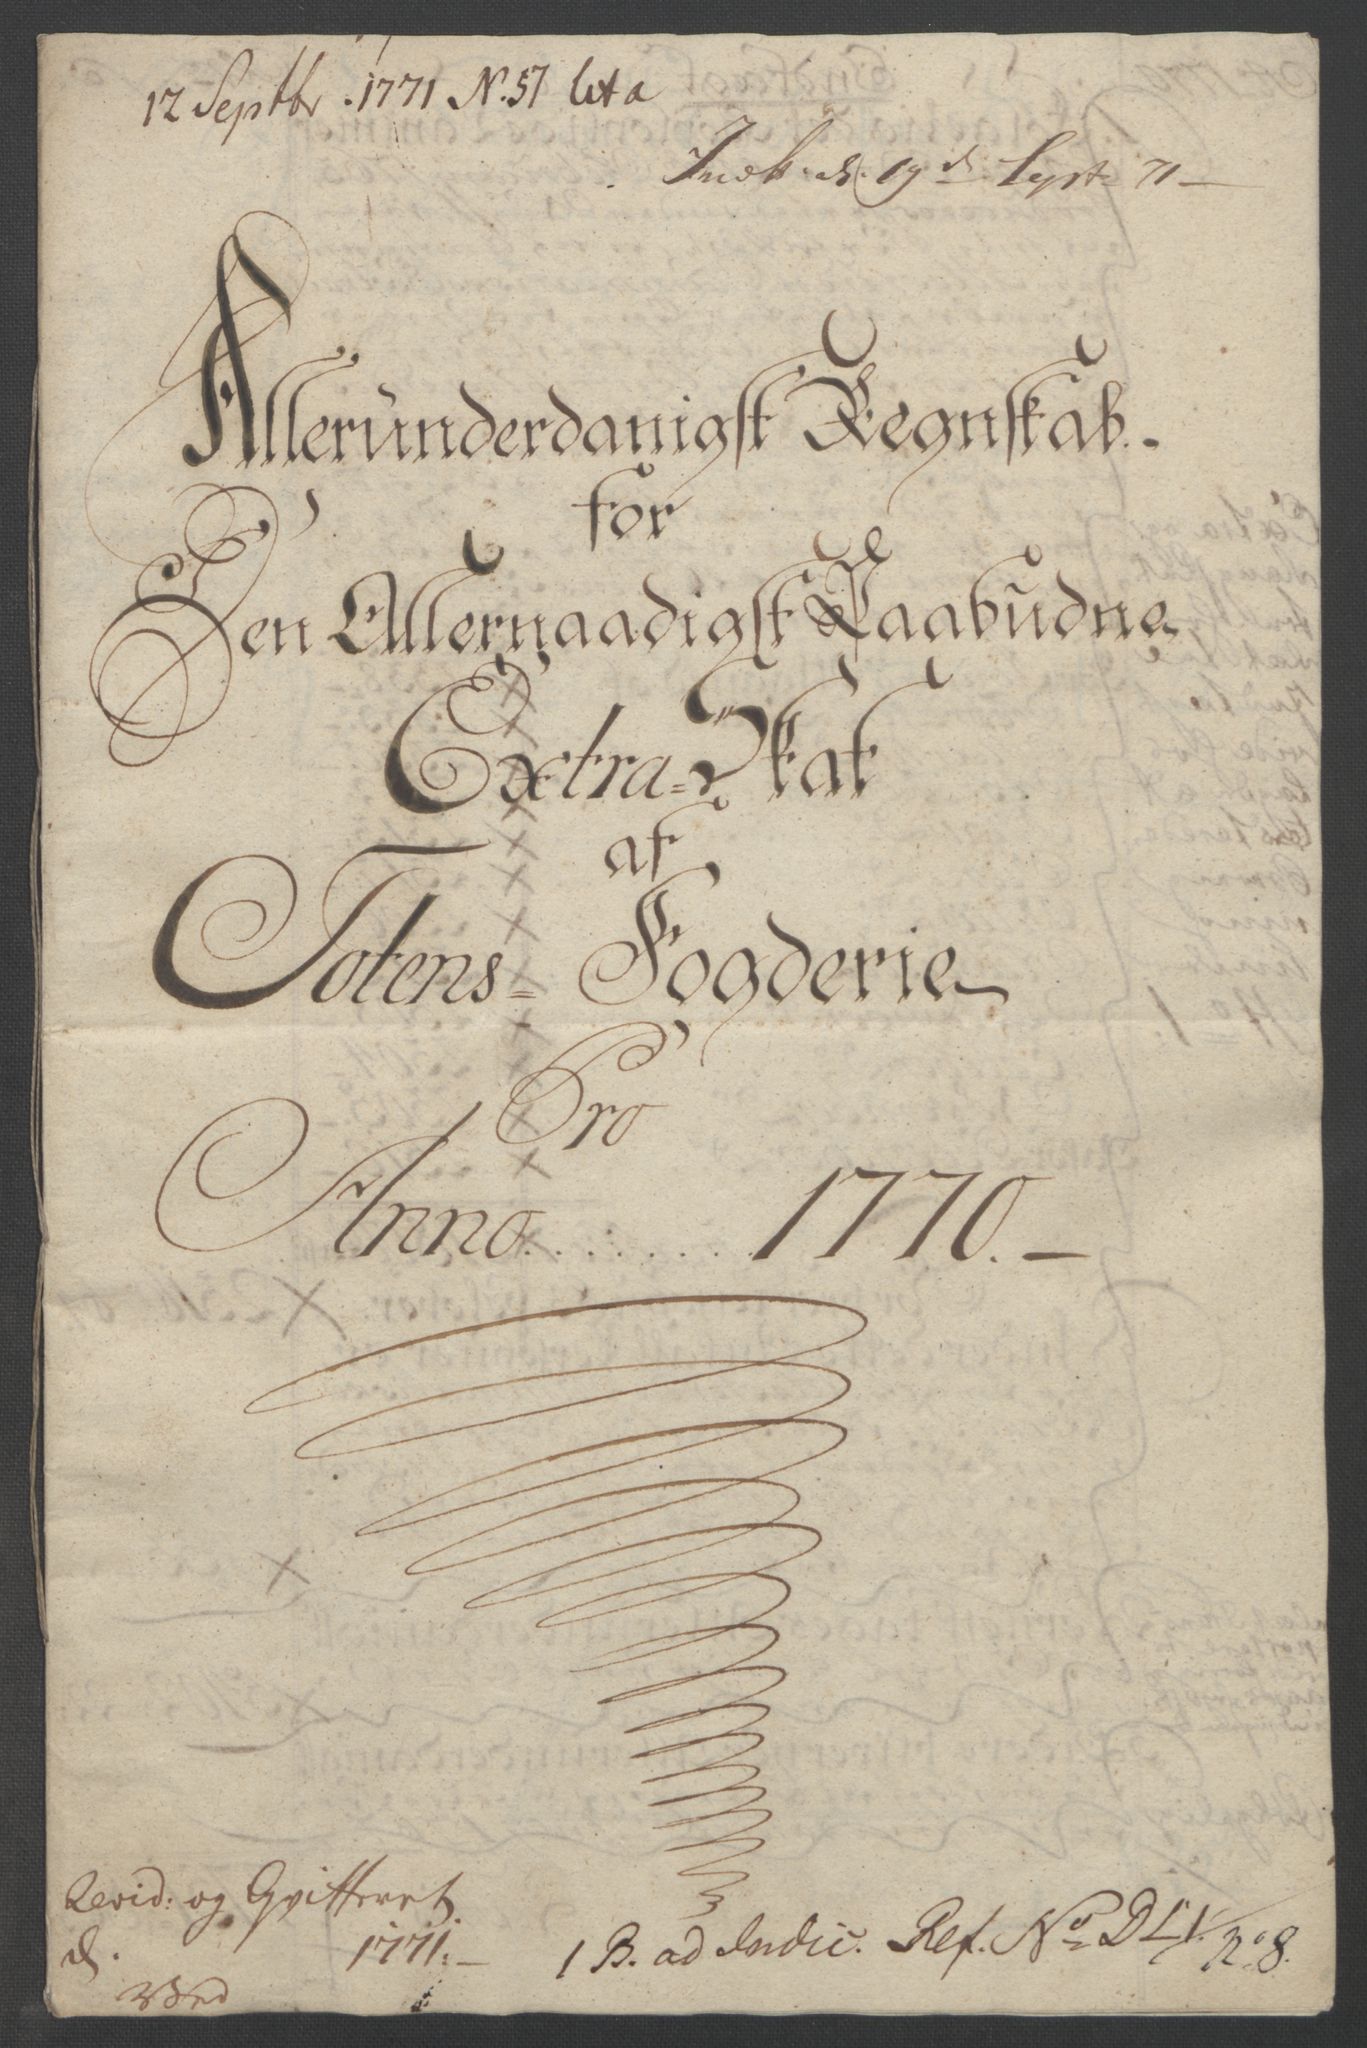 12 Septbr. 1771 N. 57 lit a
d. 19 d. Sept 71
Alleründerdanigst Regnskab.
for
Den Allernaadigst Paabüdne
Extra=Skat
af
Totens= Fogderie
Pro
Anno . . . . . . . 1770.
Revid: og Qvitteret
d. 1771.
1 B. ad Indic. Ref. No DLV. No 8.